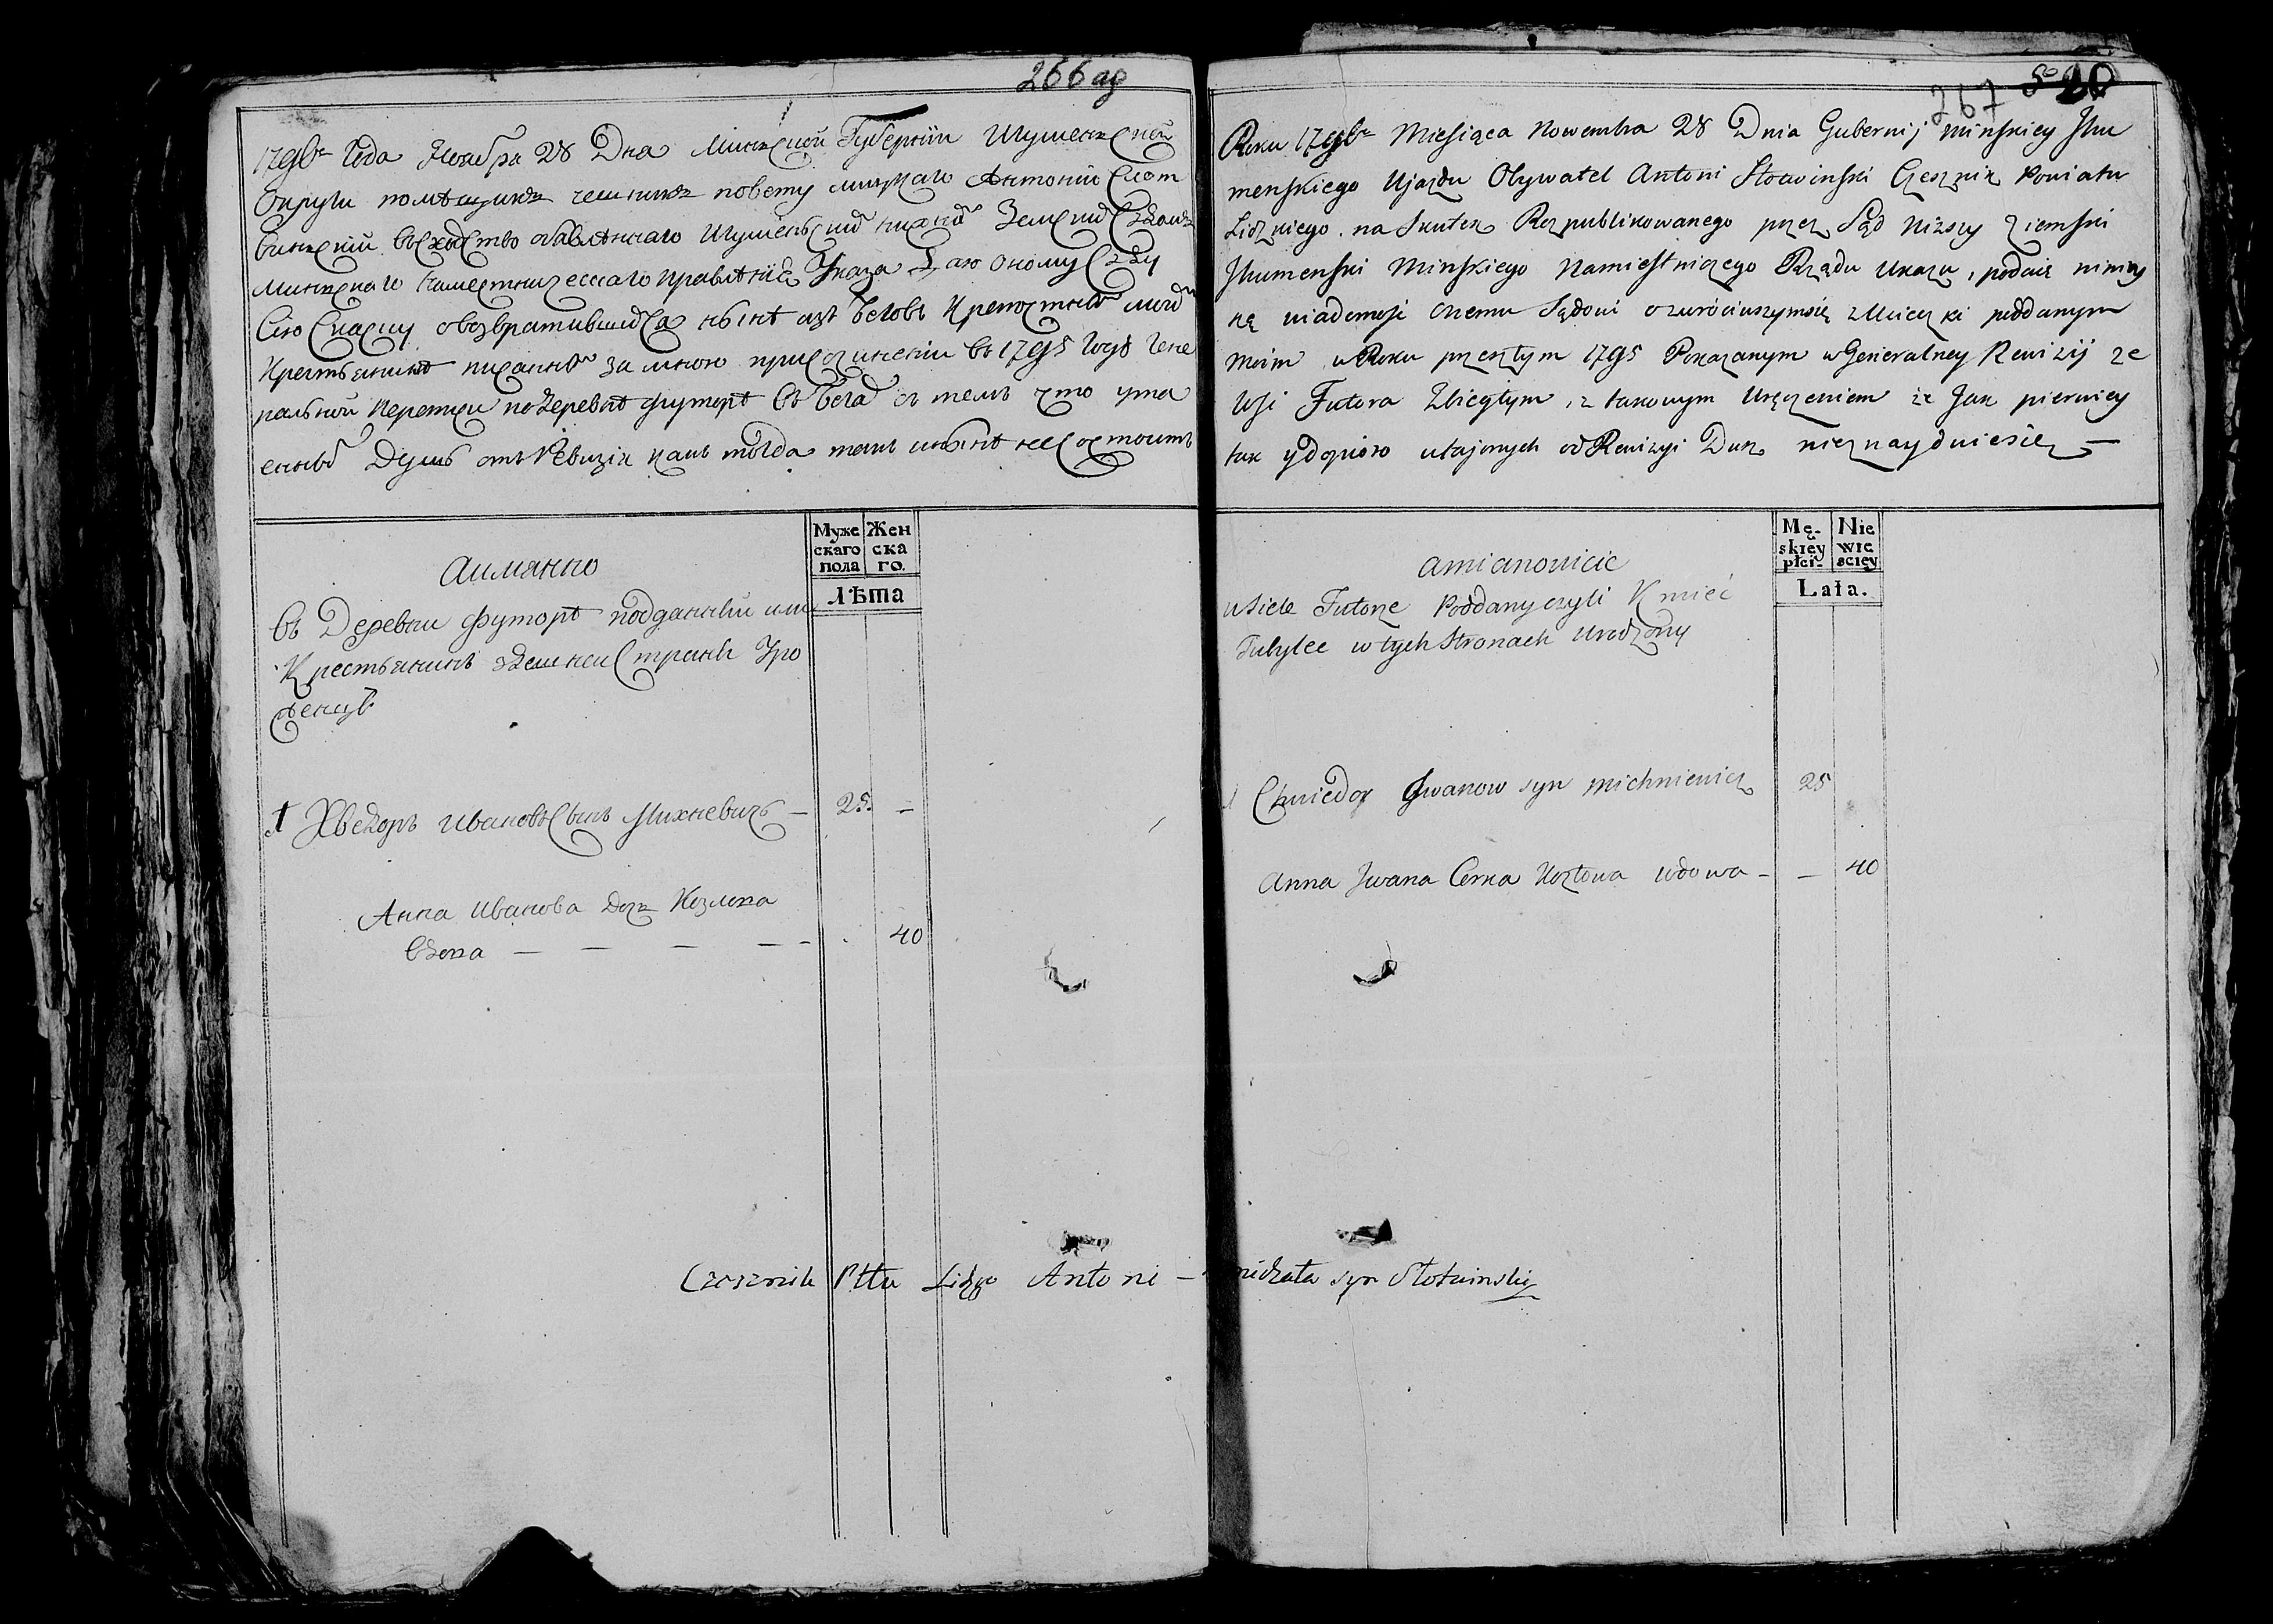 266 аg
1796го Года Ноября 28 Дня Минской Губернии Игуменской
Округи помѣщикъ чешникъ повету лидзкаго Антоній Слот
винский въ сходство обявленнаго Игуменским нижним Земским Судомъ
Минскаго наместническаго правлѣния Указа Даю оному Суду
Сию Скаску о возвратившихся нынѣ изъ бегов крепостных моих
Крестьянинѣ писанных за мною при сочинении въ 1795 году Гене
ральной переписи по деревнѣ футорѣ въ бегах съ темъ что ута
енных Душъ отъ Ревизіи какъ тогда такъ и нынѣ не состоитъ
Муже
скаго
пола
Жен
ска
го.
Лѣта
А имянно
Въ Деревни футорѣ подданный или
Крестьянинъ здешней Страны Уро
женцы
1 Хведоръ Ивановъ Сынъ Михневичъ — 25. —
Анна Иванова Дочь Козлова
Вдова — — — — 40
Czesznik Pttu Lidzgo Antoni — michała syn Słotwinski
267 50 20
Roku 1796go Miesiąca Nowembra 28 Dnia Gubernij Minskiey Jhu
menskiego Ujazdu Obywatel Antoni Słotwinski Czesznik Powiatu
Lidzkiego na Skutek Rozpublikowanego przez Sąd Niższy Ziemski
Jhumenski Minskiego Namiestniczego Rządu Ukazu, podaię ninieỵ
szą wiadomosc onemu Sądowi o zwróciwszymsię z Ucieczki poddanym
moim w Roku przeszłym 1795 Pokazanym w Generalney Rewizij ze
Wsi Futora Zbiegłym, z takowym Uręczeniem że Jak pierwiey
tak y dopiero utajonych od Rewizyi Dusz nieznayduiesię —
Mę-
skiey
płci-
Nie
wie
sciey
Lata.
a mianowicie
w Siele Futorze Poddany czyli Kmieć
Tubylec w tych Stronach Urodzony
1 Chwiedor Jwanow syn Michniewicz 25
Anna Jwana Corka Kozłowa wdowa - — 40